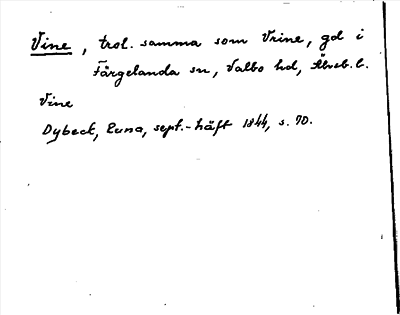 Vine, trol. samma som Vrine, gd i
Färgelanda sn, Valbo hd, Älvsb. l.
Vine
Dybeck, Runa, sept.-häft 1844, s. 70.